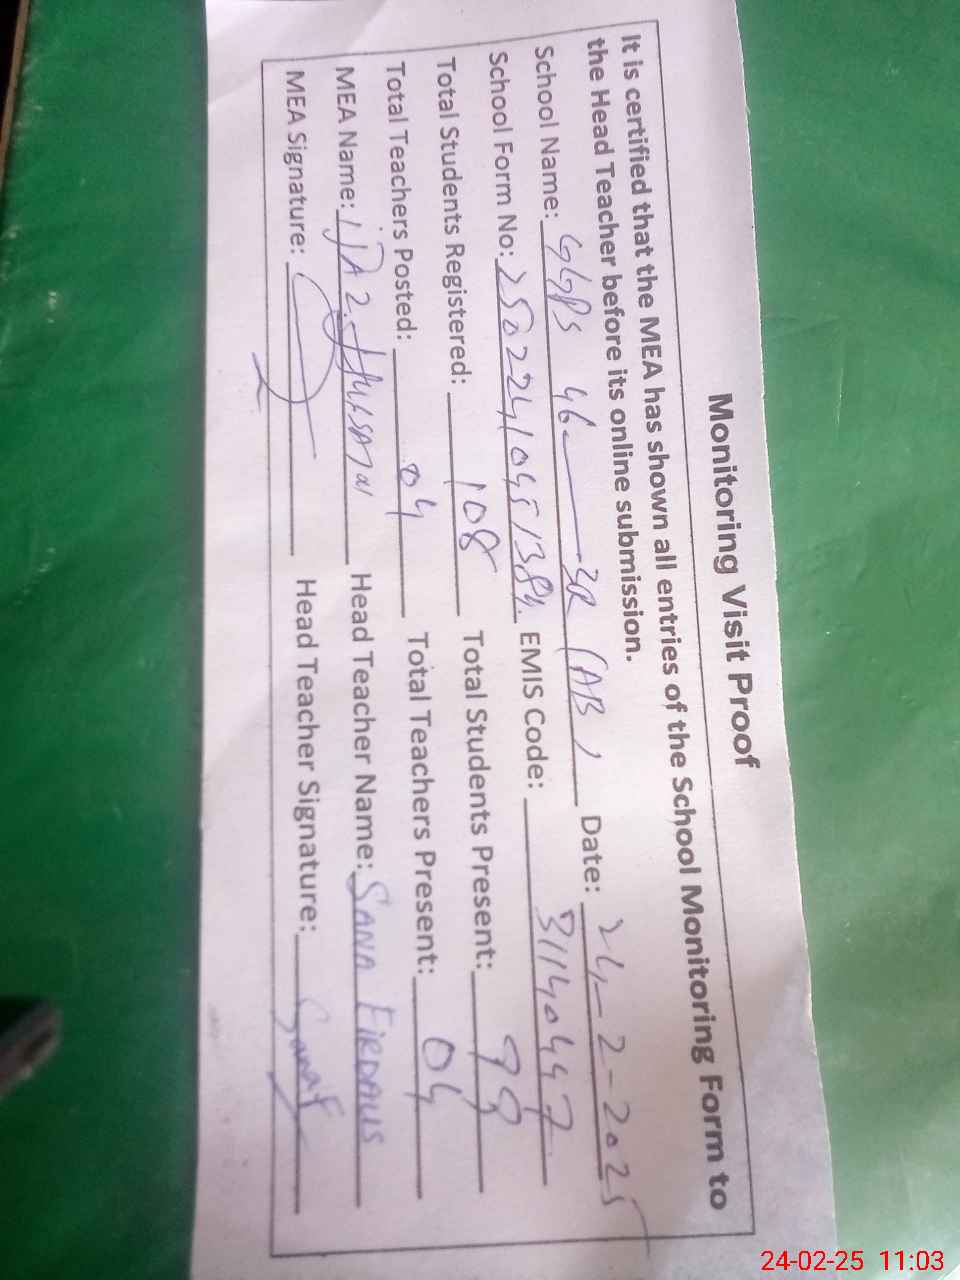 Monitoring Visit Proof
It is certified that the MEA has shown all entries of the School Monitoring Form to
the Head Teacher before its online submission.
School Name: GGPS 46 — 3R (AB) Date: 24-2-2025
School Form No: EMIS Code: 31140447
Total Students Registered: 108 Total Students Present: 99
Total Teachers Posted: 04 Total Teachers Present: 04
MEA Name: Head Teacher Name: SANA FIRDAUS
MEA Signature: Head Teacher Signature: SanaF
24-02-25 11:03